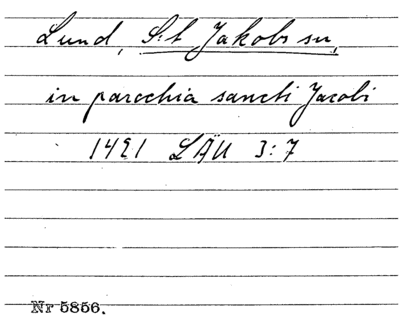 Lund, S:t Jakobs sn,
in parochia sancti Jacobi
1421 LÄU 3:7
Nr 5856.